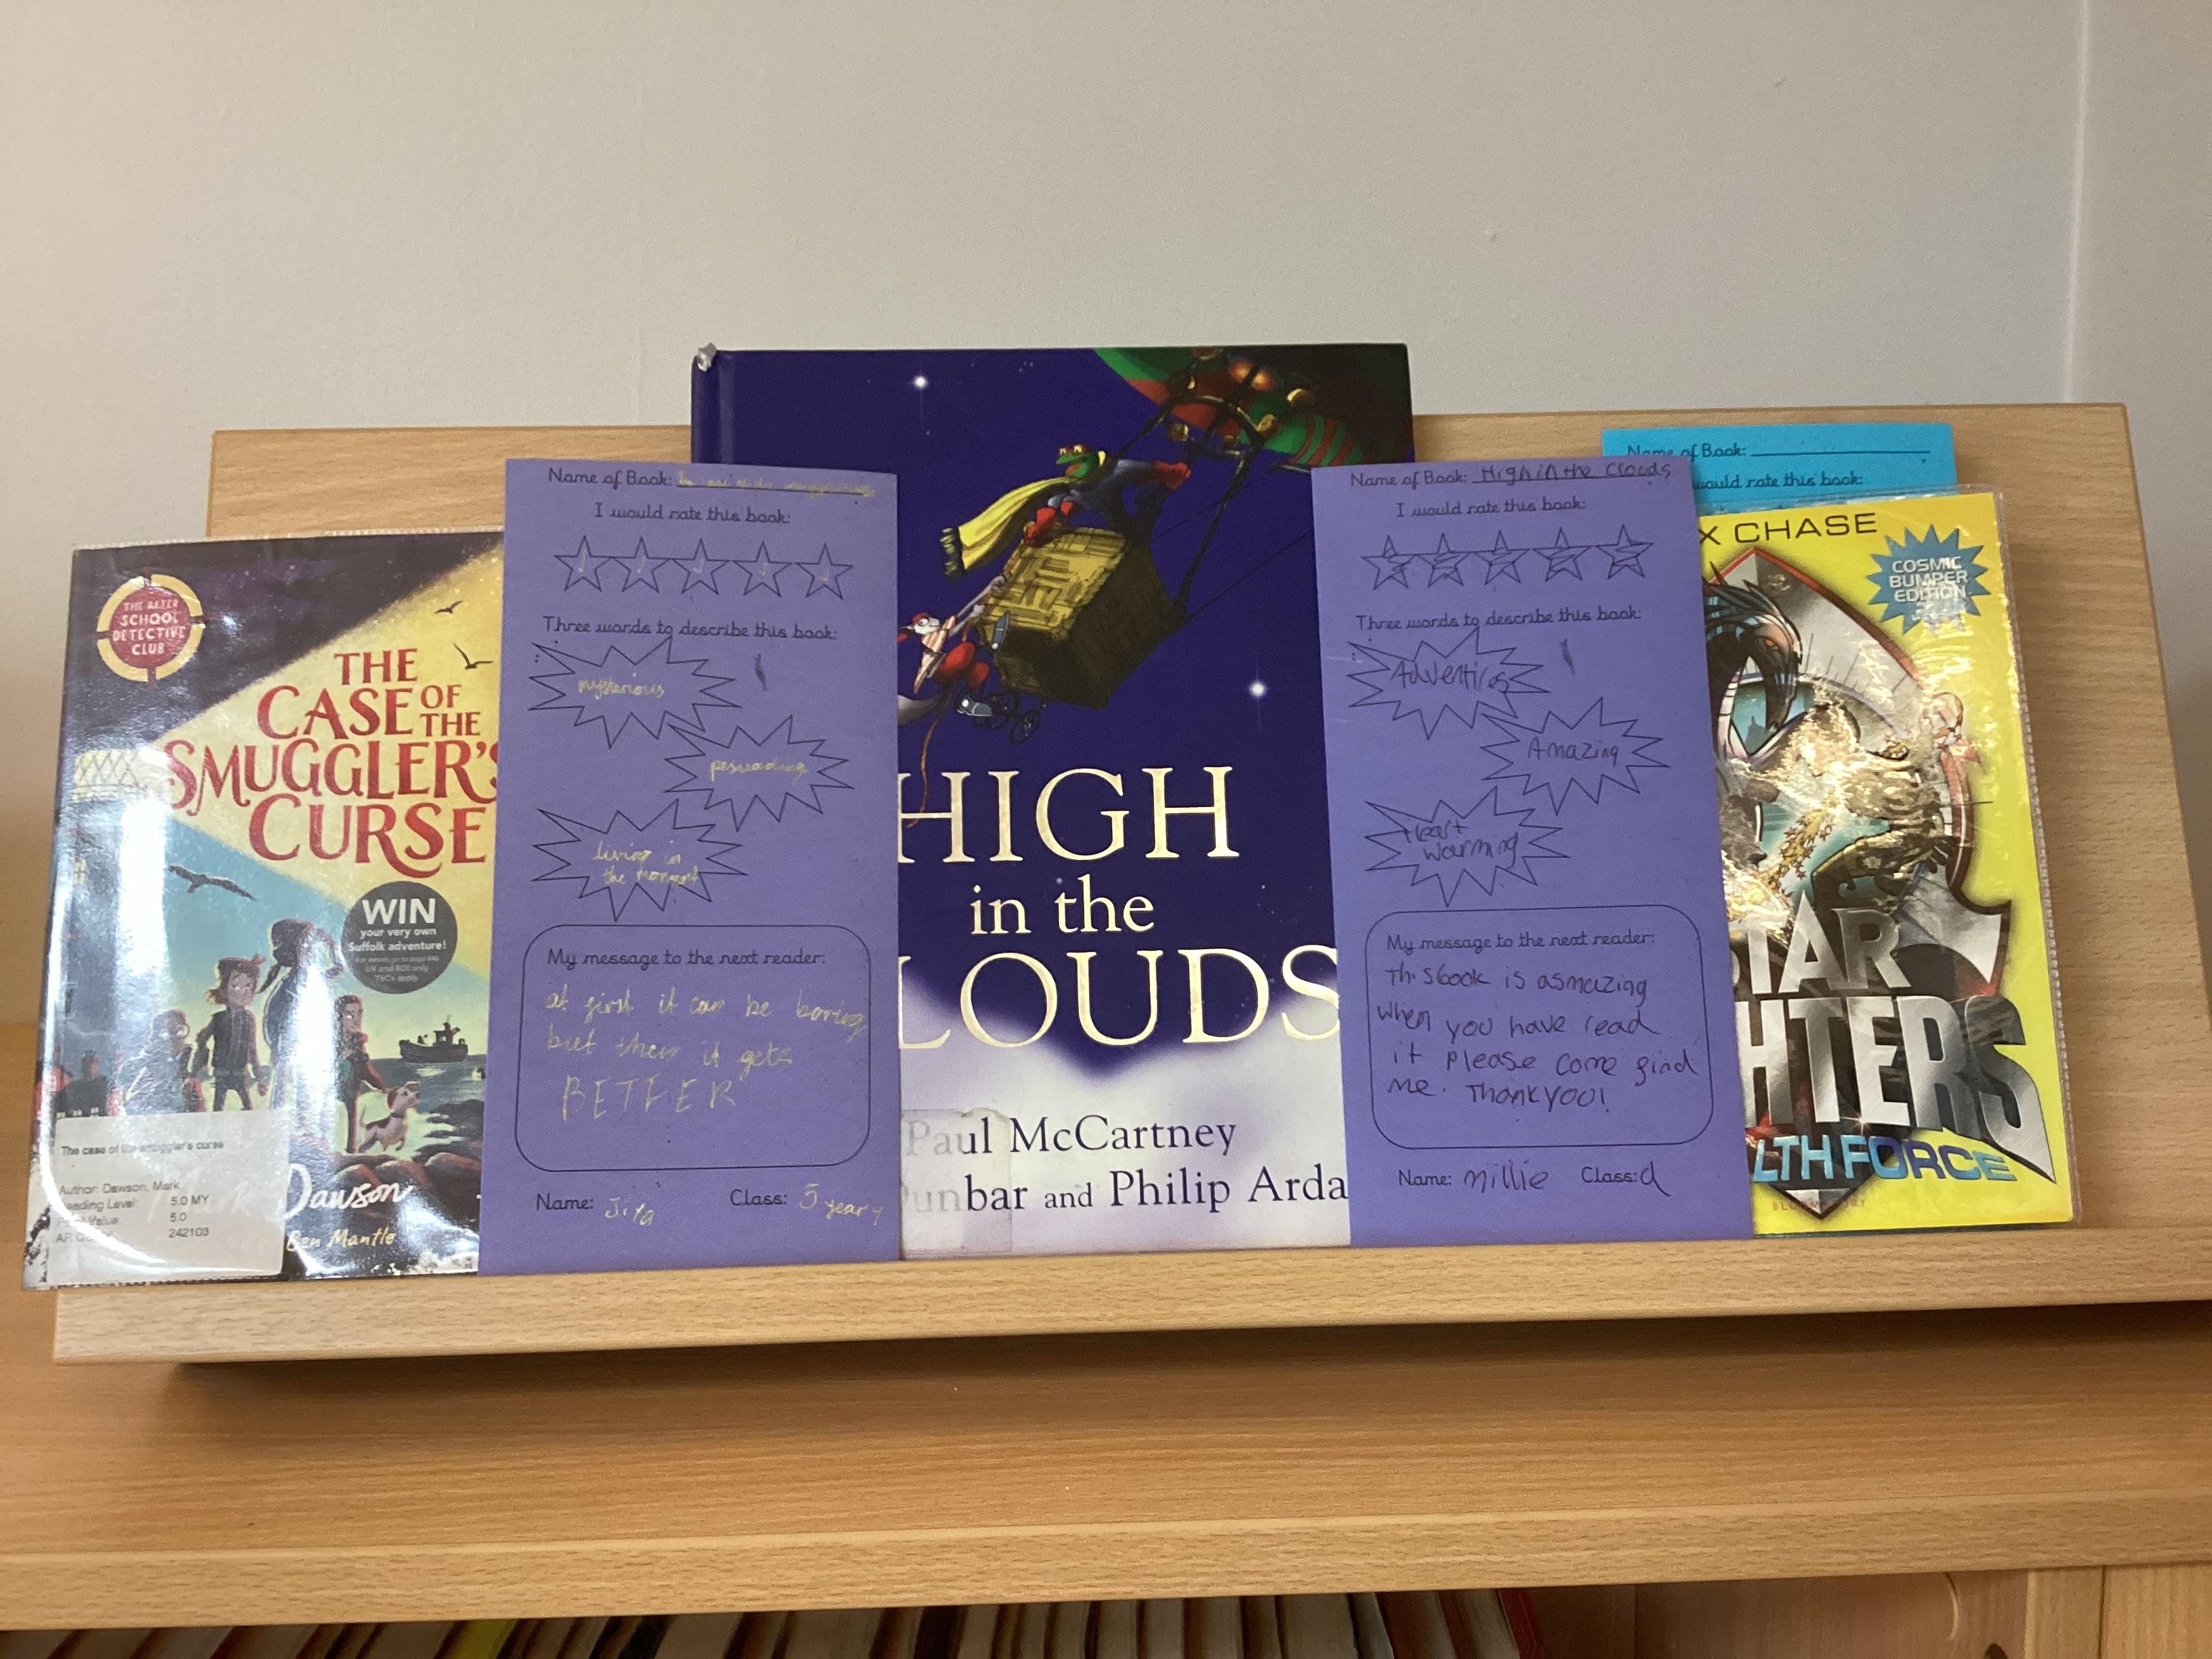 THE AFTER
SCHOOL
DETECTIVE
CLUB
THE
CASE OF
THE
SMUGGLER'S
CURSE
WIN
your very own
Suffolk adventure!
UK and ROI only
T&Cs apply
The case of the smuggler's curse
Author: Dawson, Mark
Reading Level: 5.0 MY
Value 5.0
242103
Dawson
Ben Mantle
Name of Book:
I would rate this book:
Three words to describe this book:
mysterious
peswading
living in
the moment
My message to the next reader:
at first it can be boring
but then it gets
BETTER
Name: Jiya Class: 5 year 4
HIGH
in the
LOUDS
Paul McCartney
unbar and Philip Arda
Name of Book: High in the Clouds
I would rate this book:
Three words to describe this book:
Amazing
Heart
warming
My message to the next reader:
This book is asmazing
when you have read
it please come find
me. Thank you!
Name: millie Class: d
Name of Book:
would rate this book:
X CHASE
COSMIC
BUMPER
EDITION
TAR
HTERS
LTH FORCE
BLOOMSBURY